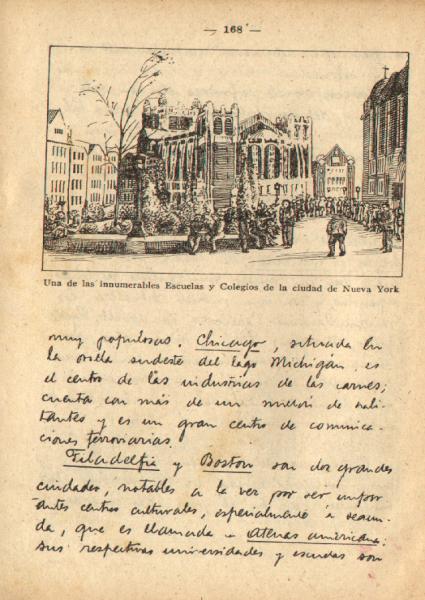 — 168 —
Una de las innumerables Escuelas y Colegios de la ciudad de Nueva York
muy populosas. Chicago, situada en
la orilla sudeste del lago Michigán, es
el centro de las industrias de las carnes;
cuenta con más de un millón de habi-
tantes y es un gran centro de comunica-
ciones ferroviarias.
Filadelfia y Boston son dos grandes
ciudades, notables a la vez por ser impor
tantes centros culturales, especialmente la segun-
da, que es llamada la Atenas americana;
sus respectivas universidades y escuelas son